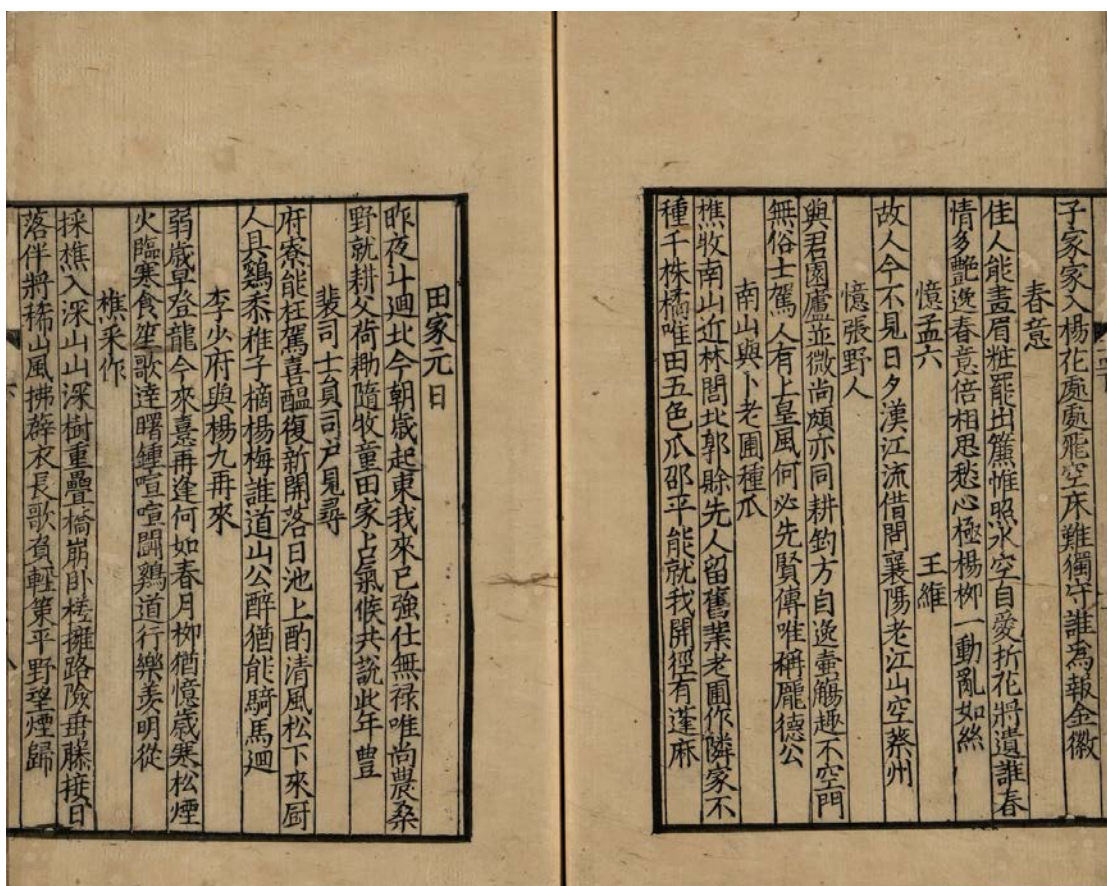 子家家入楊花處處飛空床難獨守誰為報金徽
春意
佳人能畫眉粧罷出簾帷照水空自愛折花將遺誰春
情多艷逸春意倍相思愁心極楊柳一動亂如絲
憶孟六 王維
故人今不見日夕漢江流借問襄陽老江山空蔡州
憶張野人
與君園廬並微尚頗亦同耕釣方自逸壷觴趣不空門
無俗士駕人有上皇風何必先賢傳唯稱龐德公
南山與卜老圃種瓜
樵牧南山近林閭北郭賒先人留舊業老圃作隣家不
種千株橘唯田五色瓜邵平能就我開徑有蓬麻
田家元日
昨夜斗廻北今朝歲起東我來已強仕無禄唯尚農桑
野就耕父荷鋤隨牧童田家占氣候共說此年豊
裴司士員司戶見尋
府寮能枉駕喜醖復新開落日池上酌清風松下來厨
人具鷄黍稚子摘楊梅誰道山公醉猶能騎馬廻
李少府與楊九再來
弱歲早登龍今來憙再逢何如春月柳猶憶歲寒松煙
火臨寒食笙歌達曙鍾喧喧鬪鷄道行樂羨明從
樵采作
採樵入深山山深樹重疊橋崩卧槎擁路險垂藤接日
落伴將稀山風拂薜衣長歌負軽策平野望煙歸